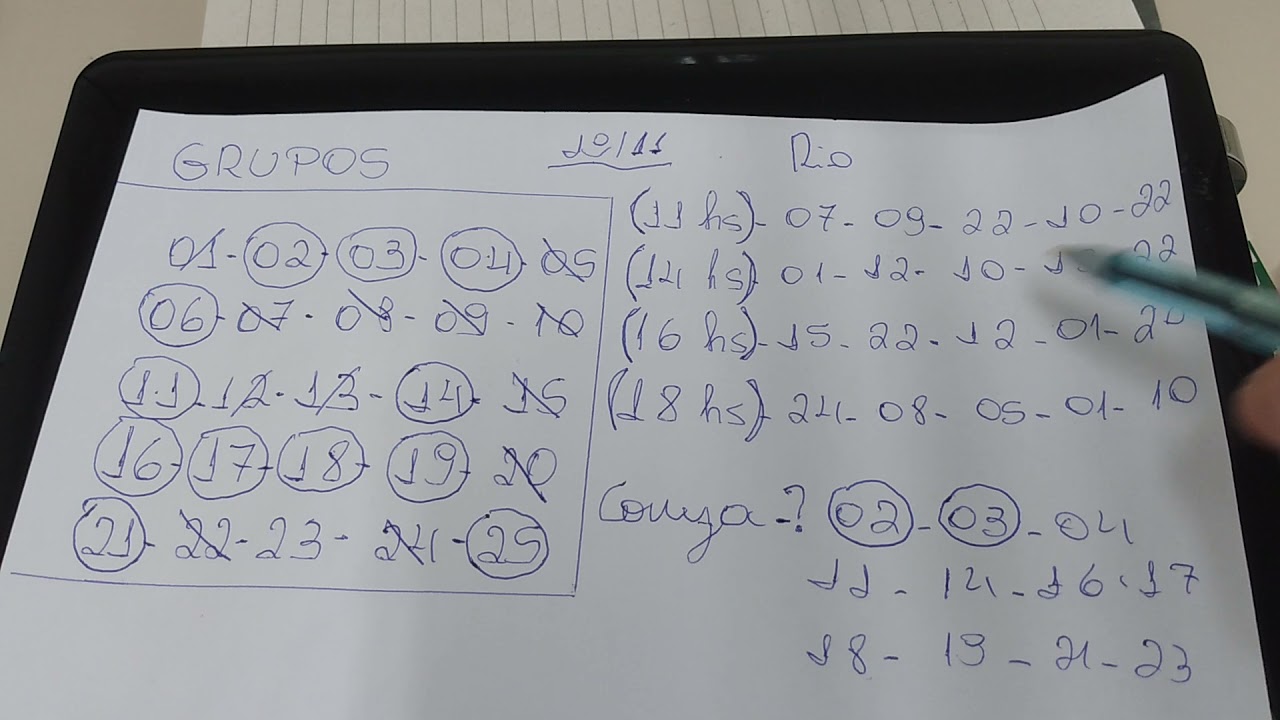 GRUPOS
01-02-03-04-05
06-07-08-09-10
11-12-13-14-15
16-17-18-19-20
21-22-23-24-25
Rio
(11 hs)-07-09-22-10-22
(14 hs)-01-12-10-22
(16 hs)-15-22-12-01-
(18 hs)-24-08-05-01-10
-? 02-03-04
11-14-16-17
18-19-21-23